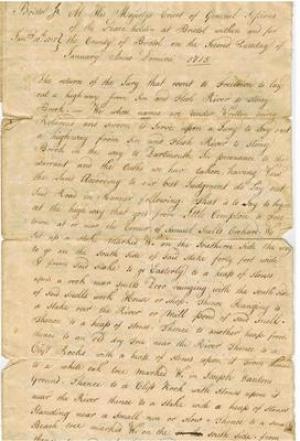 Bristol Js At His Majestys Court of General Sessions
of the Peace holden at Bristol within and for
the County of Bristol on the Second Tuesday of
January Anno Domini 1715
The return of the Jury that went to Freetown to lay
out a highway from Fin and Flesh River to Stony
Brook We whose names are under Written being
and sworn to Serve upon a Jury to Lay out
a highway from Fin and Flesh River to Stony
Brook in the way to Dartmouth In pursuance to the
warrant and the Oaths we have taken having
the same According to our best Judgment do Lay out
Said Road in Manner following That is to Say to begin
at the high way that goes from Little Compton to Free
town at or near the Corner of Samuel Snells
set up a stake marked W on the Southern Side the way
to go on the South Side of Said Stake forty foot wide
from Said Stake to go Easterly to a heap of Stones
upon a rock near Snells Door ranging with the South side
of Said Snells work House or Shop Thence Ranging to
a Stake near the River or Mill pond of Said Snell
Thence to a heap of Stones Thence to another heap from
thence to an old dry Tree near the River Thence to a
Clift Rocks with a heap of Stones upon it from
to a white oak tree marked W in Joseph
Ground Thence to a Clift Rock with Stones upon it
near the River thence to a Stake with a heap of Stones
Standing near a Small run or Slow Thence to a Small
tree marked W on the South side from